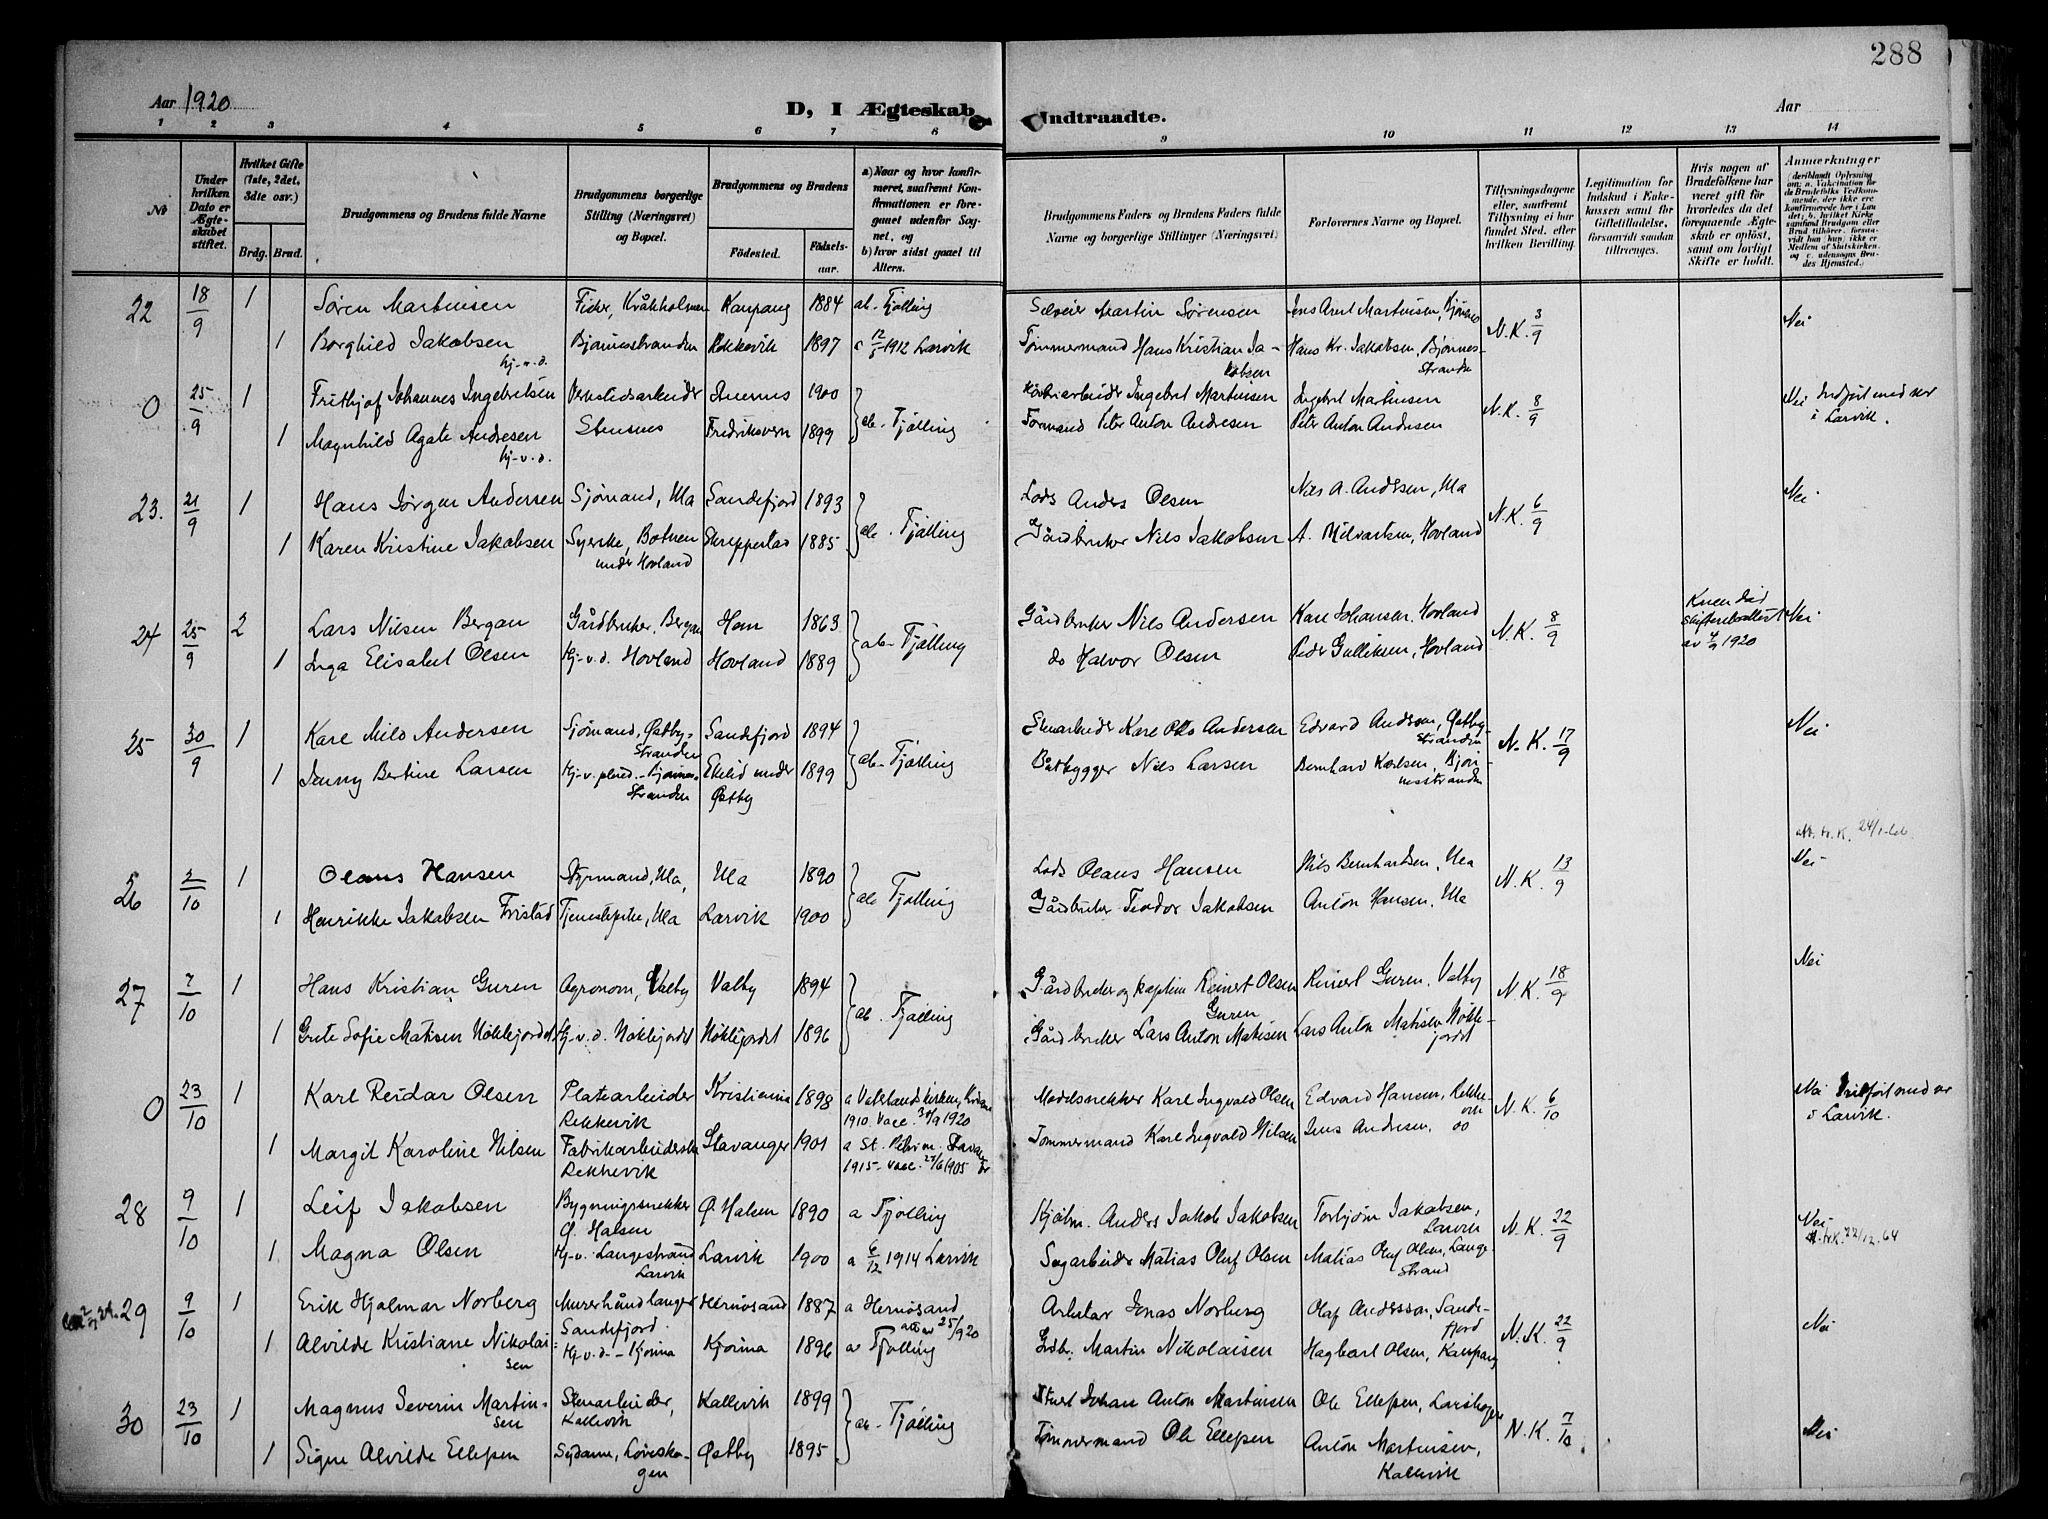 288
Aar 1920
D, I Ægteskab Indtraadte.
Aar
1 2 3 4 5 6 7 8 9 10 11 12 13 14
No
Under hvilken Dato er Ægteskabet stiftet.
Hvilket Gifte (1ste, 2det, 3dte osv.)
Brdg. Brud.
Brudgommens og Brudens fulde Navne
Brudgommens borgerlige Stilling (Næringsvei) og Bopæl.
Brudgommens og Brudens
Fødested. Fødselsaar.
a) Naar og hvor konfirmeret, saafremt Konfirmationen er foregaaet udenfor Sognet, og
b) hvor sidst gaaet til Alters.
Brudgommens Faders og Brudens Faders fulde Navne og borgerlige Stillinger (Næringsvei)
Forlovernes Navne og Bopæl.
Tillysningsdagene eller, saafremt Tillysning ei har fundet Sted, efter hvilken Bevilling.
Legitimation for Indskud i Enkekassen samt for Giftetilladelse, forsaavidt saadan tiltrænges.
Hvis nogen af Brudefolkene har været gift før hvorledes da det foregaaende Ægteskab er opløst, samt om lovligt Skifte er holdt.
Anmærkninger
22 18/9 1 Søren Martinsen Fisker, Kråkholmen Kaupang 1884 ab. Tjølling Selveier Martin Sørensen Jens Arnt Martinsen, N.K. 3/9 Nei
1 Borghild Jakobsen Bjønnesstranden Rekkevik 1897 a 1912 Larvik Tømmermand Hans Kristian Jakobsen Hans Kr. Jakobsen, Bjønnesstranden
hj-v.d.
0 25/9 1 Frithjof Johannes Ingebretsen Verkstedsarbeider 1900 ab. Tjølling Ingebret Martinsen Ingebret Martinsen N.K. 8/9 Nei Indført med nr i Larvik.
1 Magnhild Agate Andresen Stensnes Fredriksvern 1899 Formand Peter Anton Andresen Peter Anton Andresen
hj-v.d.
23. 21/9 1 Hans Jørgen Andersen Sjømand, Ula Sandefjord 1893 ab. Tjølling Lods Anders Olsen Nils A. Andersen, Ula N.K. 6/9 Nei
1 Karen Kristine Jakobsen Syerske, Botnen under Hovland Skreppestad 1885 Gårdbruker Nils Jakobsen A. Hovland
24 25/9 2 Lars Nilsen Bergan Gårdbruker, Bergan Hem 1863 ab. Tjølling Gårdbruker Nils Andersen Karl Johansen, Hovland N.K. 8/9 Konen død skifteretsattest av 1920 Nei
1 Inga Elisabet Olsen hj-v.d. Hovland Hovland 1889 do Halvor Olsen Peder Gulliksen, Hovland
25 30/9 1 Karl Nilo Andersen Sjømand, Østbystranden Sandefjord 1894 ab. Tjølling Stenarbeider Karl Otto Andersen Edvard Andersen, Østbystranden N.K. 17/9 Nei
1 Jenny Bertine Larsen Bjønnesstranden Ekelid under Østby 1899 Båtbygger Nils Larsen Bernhard Karlsen, Bjønnesstranden
26 2/10 1 Olaus Hansen Styrmand, Ula, Ula 1890 ab Tjølling Lods Olaus Hansen Nils Bernhardsen, Ula N.K. 13/9 Nei
1 Henrikke Jakobsen Fristad Tjenestepike, Ula Larvik 1900 Gårdbruker Teodor Jakobsen Anton Hansen, Ula
27 7/10 1 Hans Kristian Guren Agronom, Valby Valby 1894 ab. Tjølling Gårdbruker og kaptein Reinert Olsen Guren Reinert Guren, Valby N.K. 18/9 Nei
1 Grete Sofie Matisen Nøklejordet hj-v.d. Nøklejordet Nøklejordet 1896 Gårdbruker Lars Anton Matisen Lars Anton Matisen Nøklejordet
0 23/10 1 Karl Reidar Olsen Platearbeider Rekkevik Kristiania 1898 a 1910. Vacc. 30/9 1920 Modelsnekker Karl Ingvald Olsen Edvard Hansen, Rekkevik N.K. 6/10 Nei Indført med nr i Larvik.
1 Margit Karoline Nilsen Fabrikarbeiderske Rekkevik Stavanger 1901 a St. Petri m. Stavanger 1915- vacc. 1905 Tømmermand Karl Ingvald Nilsen Jens Andresen, do
28 9/10 1 Leif Jakobsen Bygningssnekker Ø. Halsen Ø. Halsen 1890 a Tjølling Anders Jakob Jakobsen Torbjørn Jakobsen, Larvik N.K. 22/9 Nei
1. Magna Olsen hj-v. Langestrand Larvik Larvik 1900 a 6/12 1914 Larvik Sagarbeider Matias Oluf Olsen Matias Oluf Olsen, Langestrand 22/12.64
29 9/10 1 Erik Hjalmar Norberg Murerhåndlanger Sandefjord Hernøsand 1887 a Hernøsand Arbetar Jonas Norberg Olaf Andersson, Sandefjord N.K. 22/9 Nei
1 Alvilde Kristiane Nikolaisen hj-v.d. - Kjørina Kjørina 1896 a Tjølling Gbr. Martin Nikolaisen Hagbart Olsen, Kaupang
30 23/10 1 Magnus Severin Martinsen Stenarbeider, Kallevik Kallevik 1899 ab Tjølling Johan Anton Martinsen Ole Ellefsen, N.K. 7/10 Nei
1 Signe Alvilde Ellefsen Sydame, Løveskogen Østby 1895 Tømmermand Ole Ellefsen Anton Martinsen, Kallevik